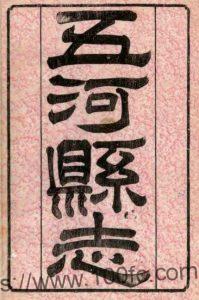 五河縣志
s://www.100fc.com